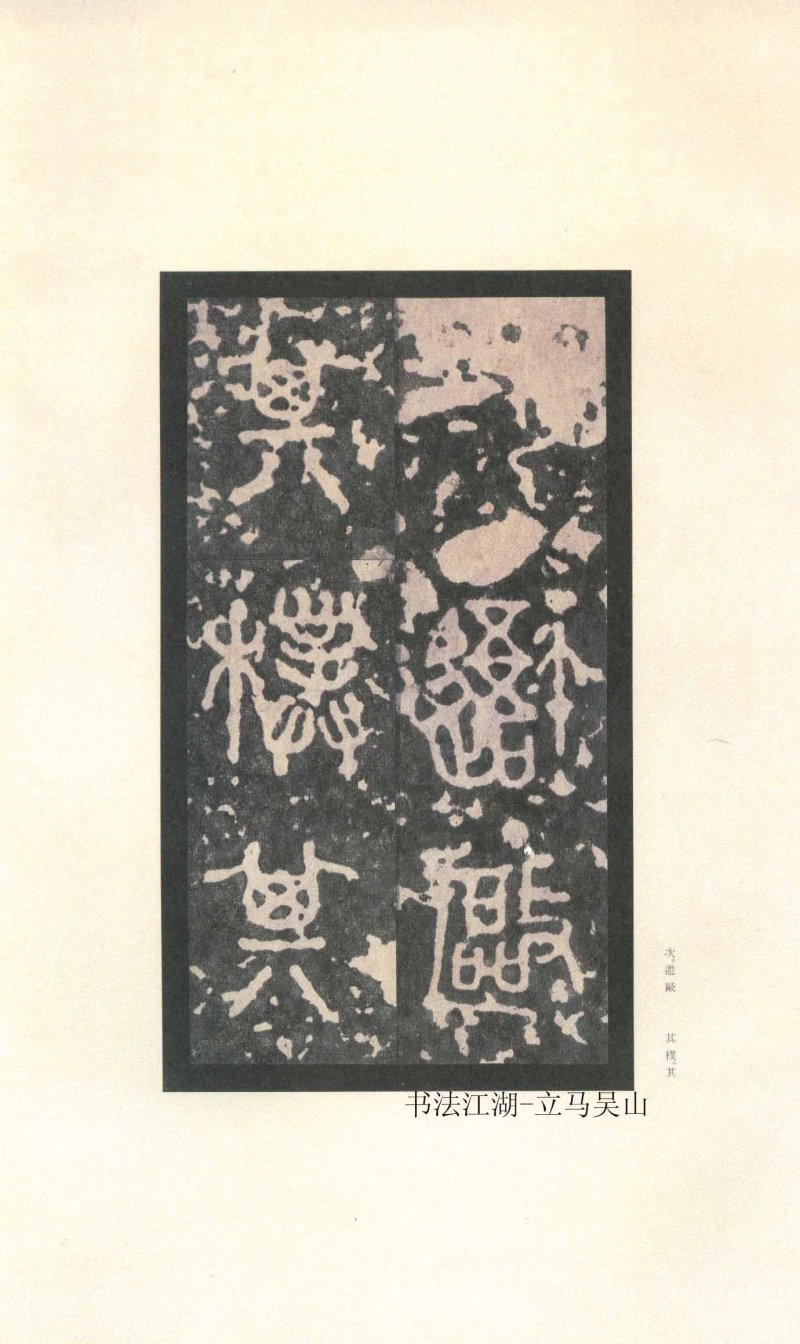 次。敺
其樸。其
次。敺
其樸。其
书法江湖-立马吴山